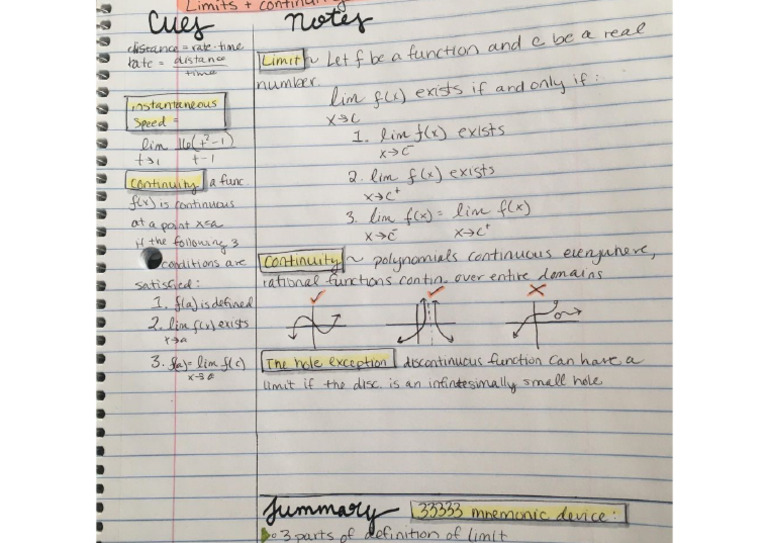 Limits + continuity
Cues
distance = rate · time
rate = distance
time
instantaneous
speed =
lim 16(t²-1)
t→1 t-1
Continuity a func.
f(x) is continuous
at a point x=a
if the following 3
conditions are
satisfied:
1. f(a) is defined
2. lim f(x) exists
x→a
3. f(a) = lim f(c)
x→a
Notes
Limit ~ Let f be a function and c be a real
number.
lim f(x) exists if and only if:
x→c
1. lim f(x) exists
x→c⁻
2. lim f(x) exists
x→c⁺
3. lim f(x) = lim f(x)
x→c⁻ x→c⁺
Continuity ~ polynomials continuous everywhere,
rational functions contin. over entire domains
✓ ✓ ✗
The hole exception discontinuous function can have a
limit if the disc. is an infinitesimally small hole
Summary 33333 mnemonic device:
3 parts of definition of limit